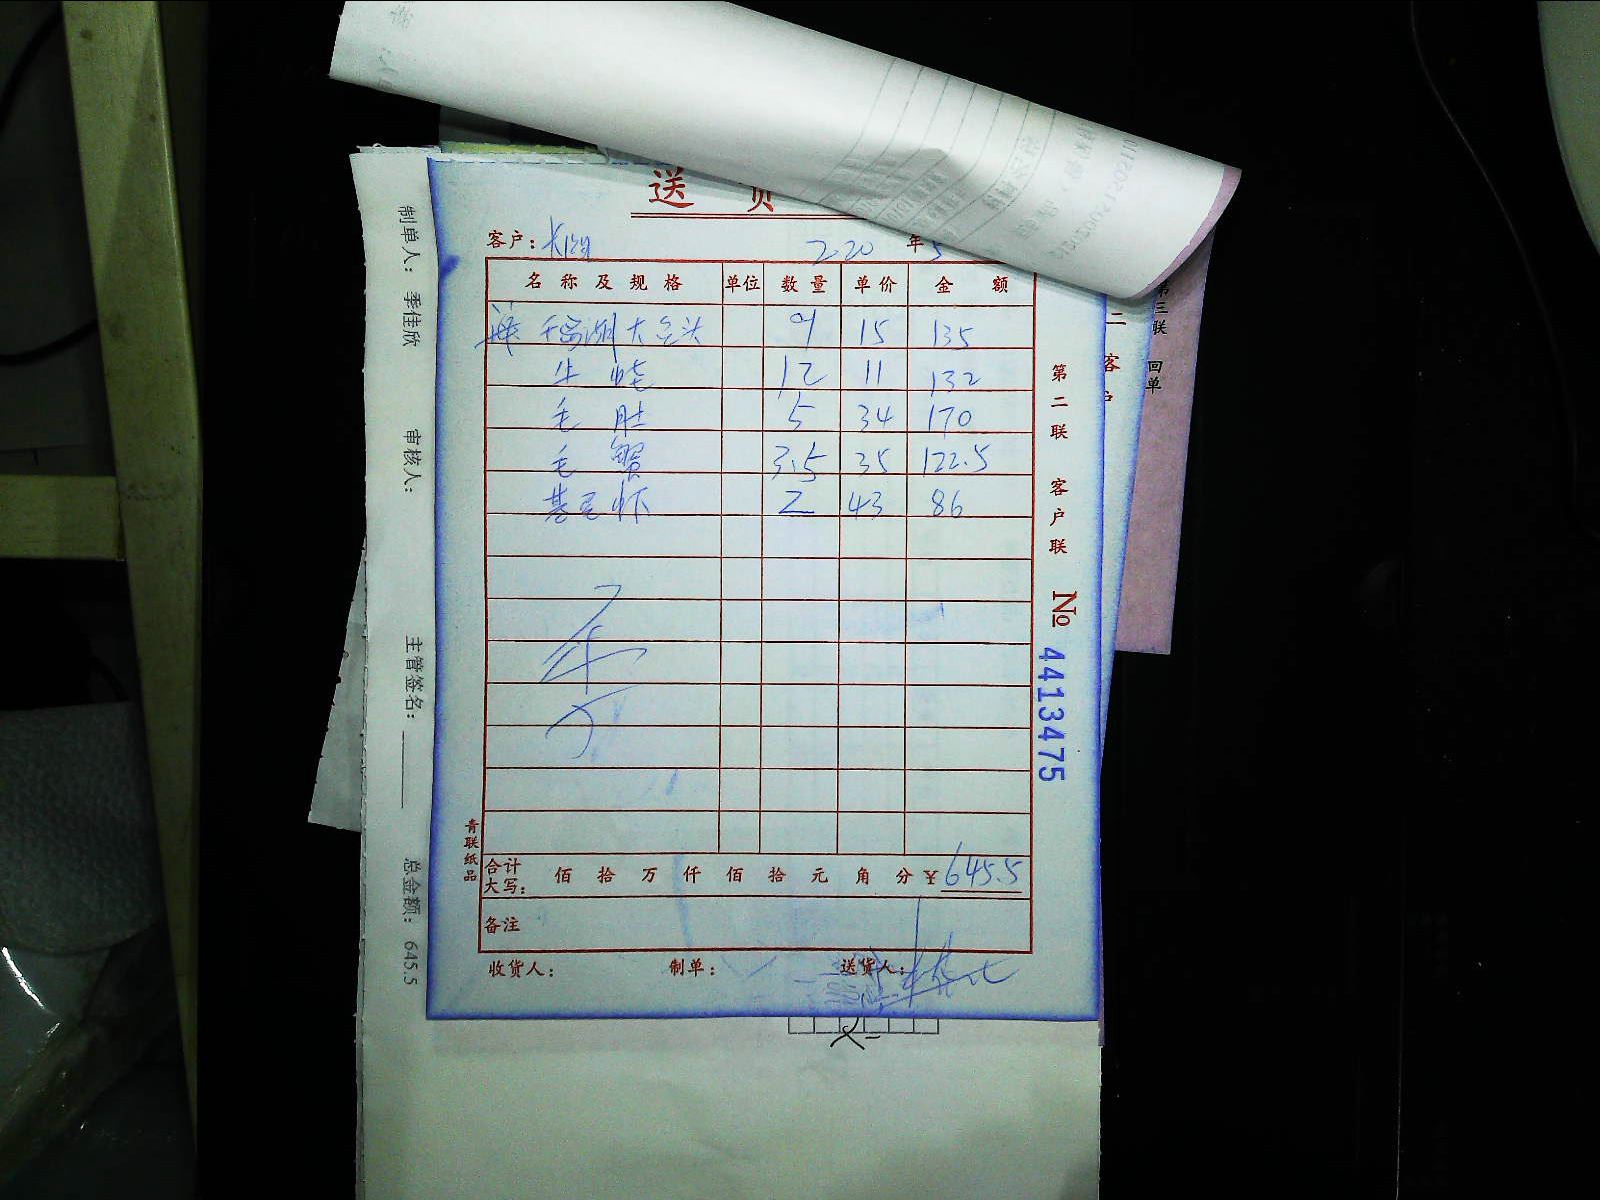 送 货
客户： 2.20 年 5
名称及规格 单位 数量 单价 金额
千岛湖大鱼头 9 15 135
牛蛙 12 11 132
毛肚 5 34 170
毛蟹 3.5 35 122.5
基尾虾 2 43 86
合计大写： 佰 拾 万 仟 佰 拾 元 角 分 ¥645.5
备注
收货人： 制单： 送货人：
青联纸品
第二联 客户联
№ 4413475
制单人： 季佳欣 审核人： 主管签名： 总金额： 645.5
二 客户
第三联 回单